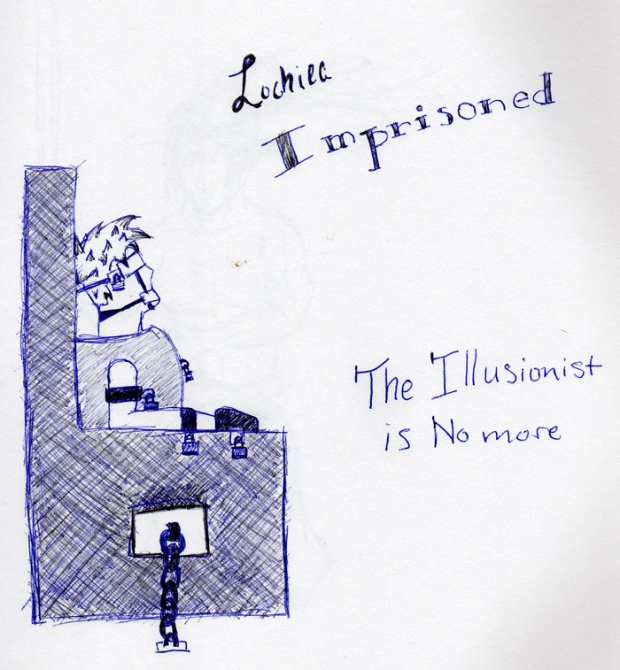 Imprisoned
The Illusionist
is No more